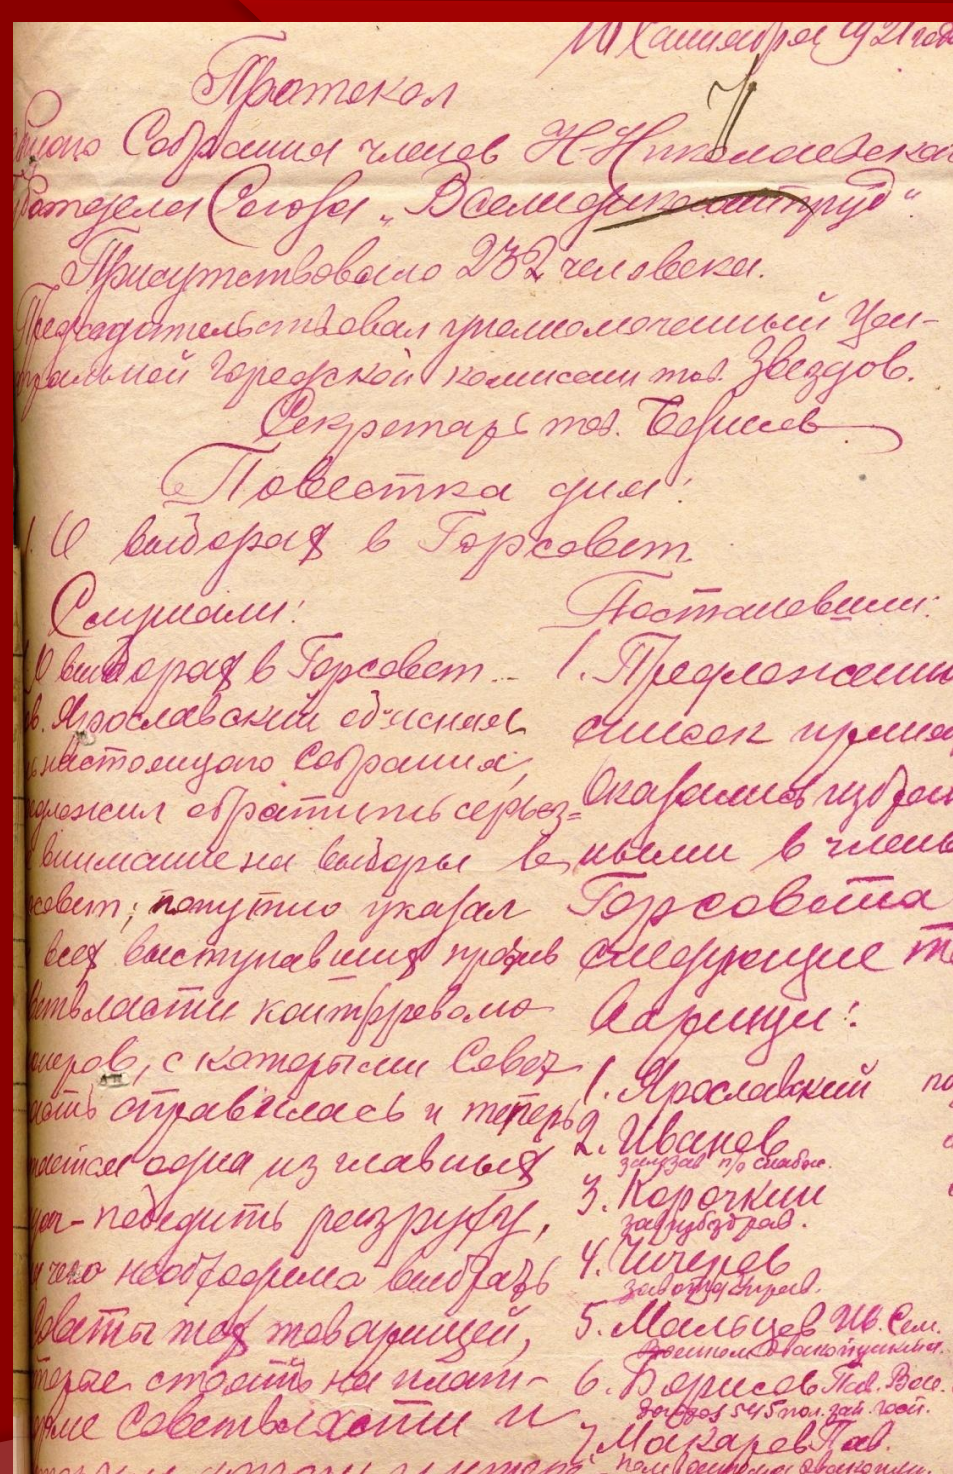 1921 года
Протокол
Собрания членов Н-Николаевского
Союза „Всемедикосантруд“.
Присутствовало 232 человека.
Председательствовал уполномоченный Цен-
тральной городской комиссии тов. Звездов.
Секретарь тов. Борисов
Повестка дня:
1. О выборах в Горсовет
Слушали:
О выборах в Горсовет.
Ярославский об'яснил
настоящего Собрания,
обратить серьез=
внимание на выборы в
попутно указал
всех выступавших против
власти контрреволю-
с которыми Совет
справилась и теперь
одна из главных
победить разруху,
чего необходимо выбрать
тех товарищей,
стоять на плат-
Советвласти и
Постановили:
1. Предложенный
список принят
Оказались избран
ными в члены
Горсовета
следующие то
варищи:
1. Ярославский
2. Иванов
3. Корочкин
завгубздрав.
4. Чичеров
5. Мальцев Ив. Сем.
6. Борисов Пав. Вас.
7 Макаров Пав.